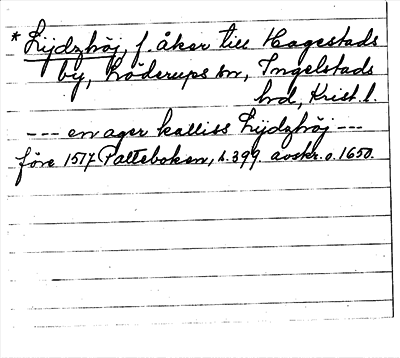 * Lijdzhöj, f. åker till Hagestads
by, Löderups sn, Ingelstads
hrd, Krist. l.
--- en ager kalliss Lijdzhöj ---
före 1517 Palteboken, s. 399. avskr. o. 1650.